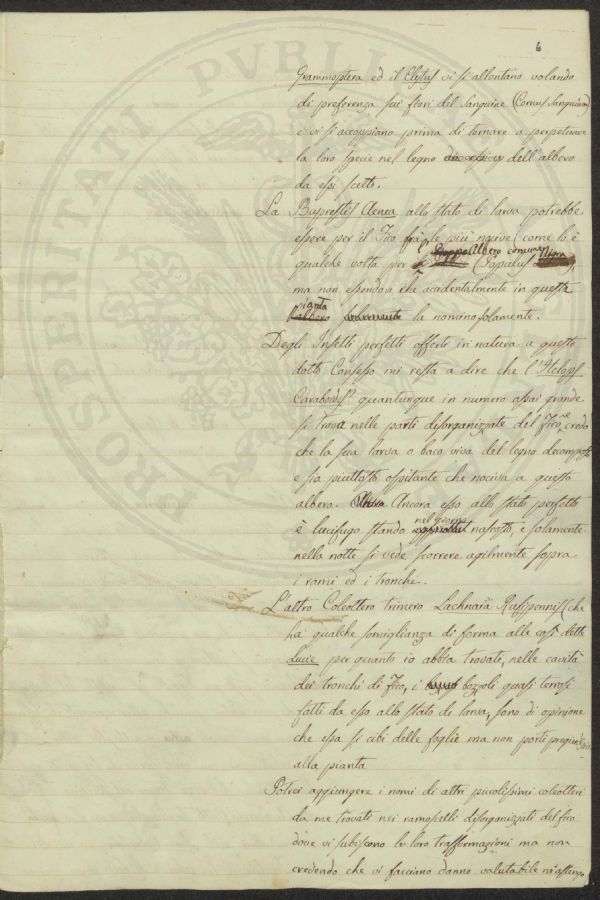 6
Grammoptera ed il Clytus vi si allontano volando
di preferenza sui fiori del Sanguine (Cornus Sanguinea)
e vi si accoppiano prima di tornare a perpetuare
la loro specie nel legno dell'albero
da essi scelto.
La Buprestis Aenea allo stato di larva potrebbe
essere per il Fico frà le più nocive (come lo è
qualche volta per Albero comune (Populus Nigra)
ma non essendosi che accidentalmente in questa
pianta la nomino solamente.
Degli Insetti perfetti offerti in natura a questo
dotto Consesso mi resta a dire che l'Helops
Caraboides quantunque in numero assai grande
si trova nelle parti disorganizzate del Fico, credo
che la sua larva o baco viva del legno decomposto
e sia piuttosto ospitante che nociva a questo
albero. Ancora esso allo stato perfetto
è lucifugo stando nel giorno nascosto, e solamente
nella notte si vede scorrere agilmente sopra
i rami ed i tronchi.
L'altro Coleottero trimero Lachnaia Rufipennis (che
ha qualche somiglianza di forma alle così dette
Lucie per quanto io abbia trovati, nelle cavità
dei tronchi di Fico, i bozzoli quasi terrosi
fatti da esso allo stato di larva, sono di opinione
che essa si cibi delle foglie ma non porti pregiudizio
alla pianta
Potrei aggiungere i nomi di altri piccolissimi coleotteri
da me trovati nei ramoscelli disorganizzati del fico
dove vi subiscono le loro trasformazioni ma non
credendo che vi facciano danno valutabile mi astengo
PROSPERITATI PVBLI